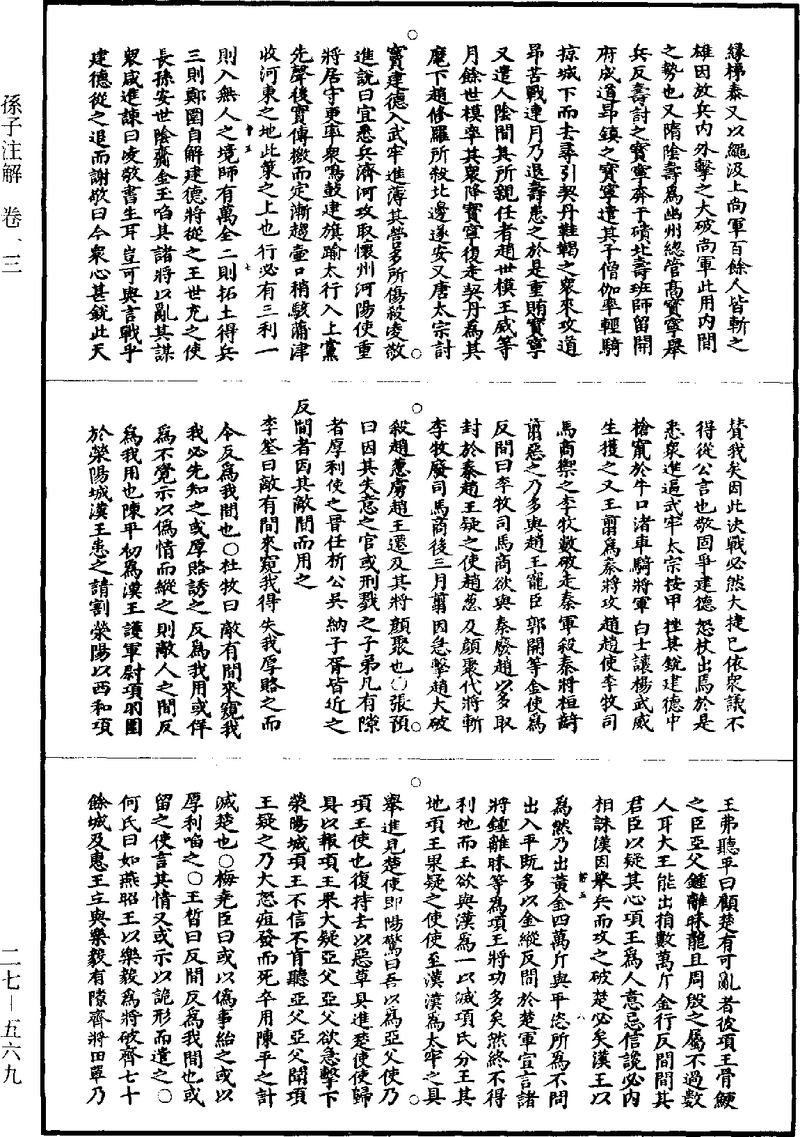 緣梯泰又以繩汲上尚軍百餘人皆斬之
雄因放兵內外擊之大破尚軍此用內間
之勢也又隋陰壽為幽州總管高寶寧舉
兵反壽討之寶寧奔于磧北壽班師留開
府成道昂鎮之寶寧遣其子僧伽率輕騎
掠城下而去尋引契丹靺鞨之衆來攻道
昂苦戰連月乃退壽患之於是重賄寶寧
又遣人陰間其所親任者趙世模王威等
月餘世模率其衆降寶寧復走契丹為其
麾下趙修羅所殺北邊遂安又唐太宗討
竇建德入武牢進薄其營多所傷殺凌敬
進說曰宜悉兵濟河攻取懷州河陽使重
將居守更率衆鳴鼓建旗踰太行入上黨
先聲後實傳檄而定漸趨壺口稍駭蒲津
收河東之地此策之上也行必有三利一
則入無人之境師有萬全二則拓土得兵
三則鄭圍自解建德將從之王世充之使
長孫安世陰齎金玉啗其諸將以亂其謀
衆咸進諫曰凌敬書生耳豈可與言戰乎
建德從之退而謝敬曰今衆心甚銳此天
贊我矣因此決戰必然大捷已依衆議不
得從公言也敬固爭建德怒杖出焉於是
悉衆進逼武牢太宗按甲挫其銳建德中
槍竄於牛口渚車騎將軍白士讓楊武威
生獲之又王翦為秦將攻趙趙使李牧司
馬商禦之李牧數破走秦軍殺秦將桓齮
翦惡之乃多與趙王寵臣郭開等金使為
反間曰李牧司馬商欲與秦廢趙以多取
封於秦趙王疑之使趙蔥及顏聚代將斬
李牧廢司馬商後三月翦因急擊趙大破
殺趙蔥虜趙王遷及其將顏聚也○張預
曰因其失意之官或刑戮之子弟凡有隙
者厚利使之晉任析公吳納子胥皆近之
反間者因其敵間而用之
李筌曰敵有間來窺我得失我厚賂之而
令反為我間也○杜牧曰敵有間來窺我
我必先知之或厚賂誘之反為我用或佯
為不覺示以偽情而縱之則敵人之間反
為我用也陳平初為漢王護軍尉項羽圍
於滎陽城漢王患之請割滎陽以西和項
王弗聽平曰顧楚有可亂者彼項王骨鯁
之臣亞父鍾離昧龍且周殷之屬不過數
人耳大王能出捐數萬斤金行反間間其
君臣以疑其心項王為人意忌信讒必內
相誅漢因舉兵而攻之破楚必矣漢王以
為然乃出黃金四萬斤與平恣所為不問
出入平既多以金縱反間於楚軍宣言諸
將鍾離昧等為項王將功多矣然終不得
利地而王欲與漢為一以滅項氏分王其
地項王果疑之使使至漢漢為太牢之具
舉進見楚使即陽驚曰吾以為亞父使乃
項王使也復持去以惡草具進楚使使歸
具以報項王果大疑亞父亞父欲急擊下
滎陽城項王不信不肯聽亞父亞父聞項
王疑之乃大怒疽發而死卒用陳平之計
滅楚也○梅堯臣曰或以偽事紿之或以
厚利啗之○王晳曰反間反為我間也或
留之使言其情又或示以詭形而遣之○
何氏曰如燕昭王以樂毅為將破齊七十
餘城及惠王立與樂毅有隙齊將田單乃
孫子注解 卷一三
二七–五六九